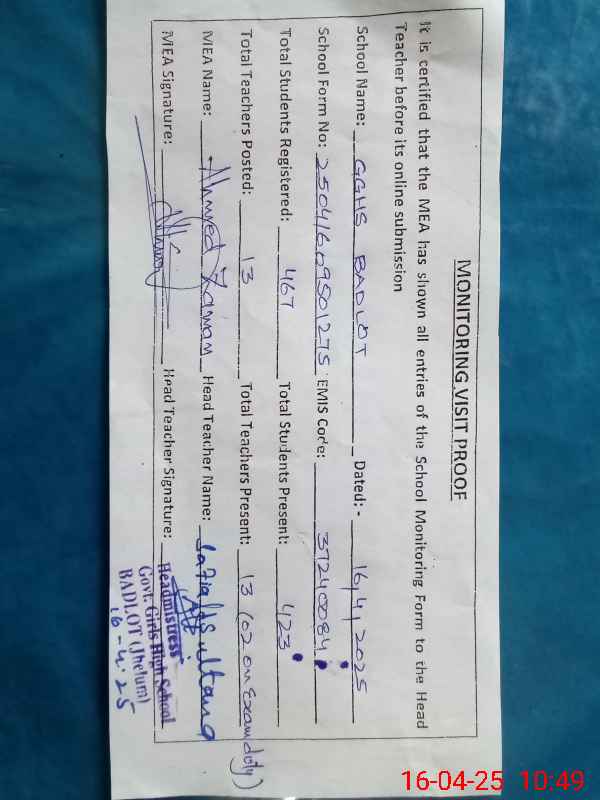 MONITORING VISIT PROOF
It is certified that the MEA has shown all entries of the School Monitoring Form to the Head
Teacher before its online submission
School Name: GGHS BADLOT Dated:- 16,4,2025
School Form No: 2504160950127S EMIS Code: 37240084
Total Students Registered: 467 Total Students Present: 423
Total Teachers Posted: 13 Total Teachers Present: 13 (02 on Exam duty)
MEA Name: Ahmed Zaman Head Teacher Name: Safia Sultana
MEA Signature: Head Teacher Signature:
Headmistress
Govt. Girls High School
BADLOT (Jhelum)
16-4-25
16-04-25 10:49